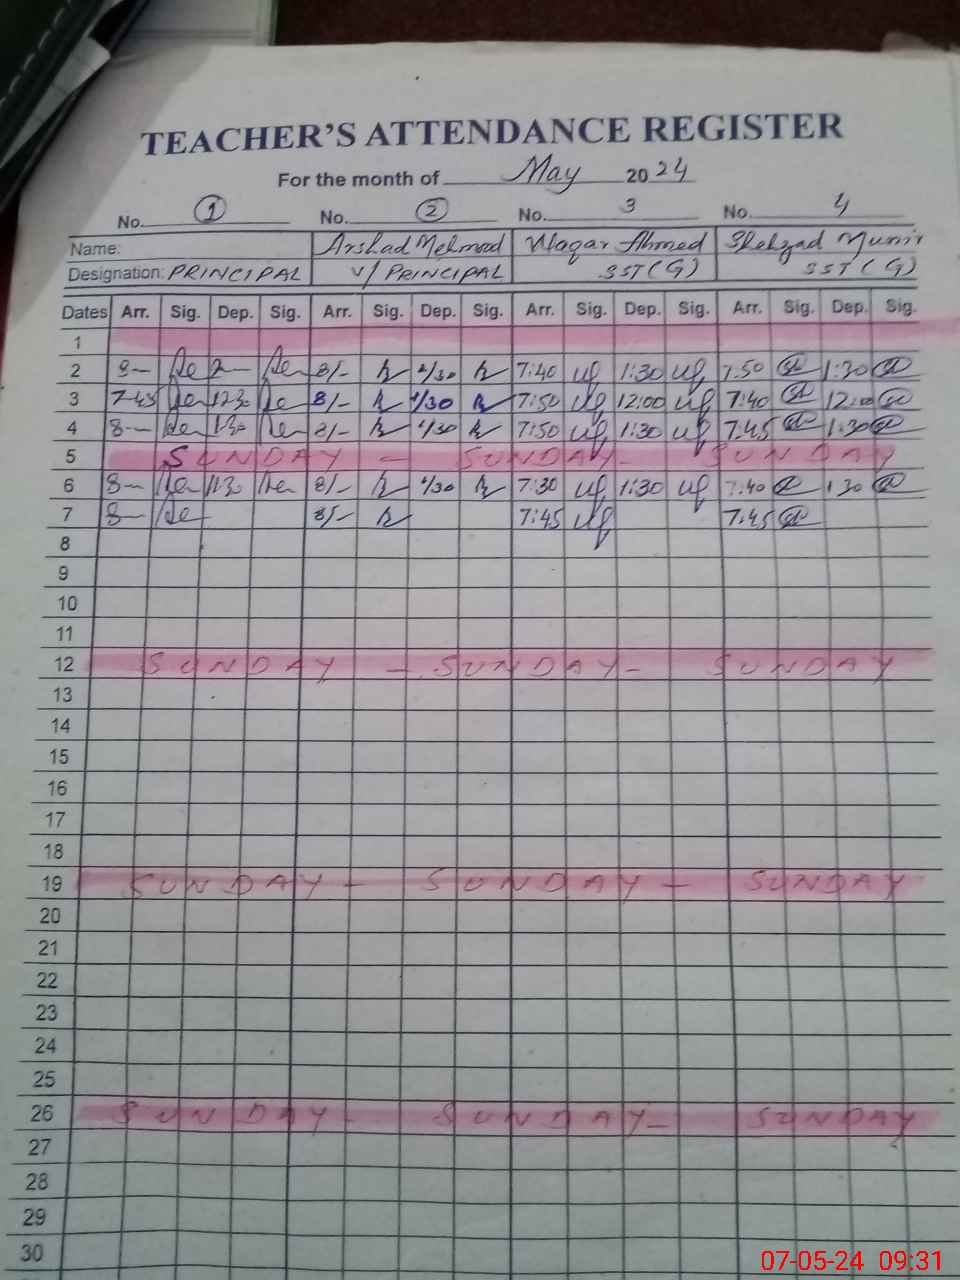 TEACHER'S ATTENDANCE REGISTER
For the month of May 2024
No. 1 No. 2 No. 3 No. 4
Name: Arshad Mehmood Waqar Ahmed Shehzad Munir
Designation: PRINCIPAL V/PRINCIPAL SST(G) SST(G)
Dates Arr. Sig. Dep. Sig. Arr. Sig. Dep. Sig. Arr. Sig. Dep. Sig. Arr. Sig. Dep. Sig.
1
2 8- 2- 8/- 7:40 1:30 7:50 1:30
3 7-45 12-30 8/- 7:50 12:00 7:40 12:00
4 8- 1-30 8/- 7:50 1:30 7:45 1:30
5 SUNDAY - SUNDAY - SUNDAY
6 8- 8/- 7:30 1:30 7:40 1:30
7 8- 8/- 7:45 7:45
8
9
10
11
12 SUNDAY - SUNDAY - SUNDAY
13
14
15
16
17
18
19 SUNDAY - SUNDAY - SUNDAY
20
21
22
23
24
25
26 SUNDAY - SUNDAY - SUNDAY
27
28
29
30
07-05-24 09:31